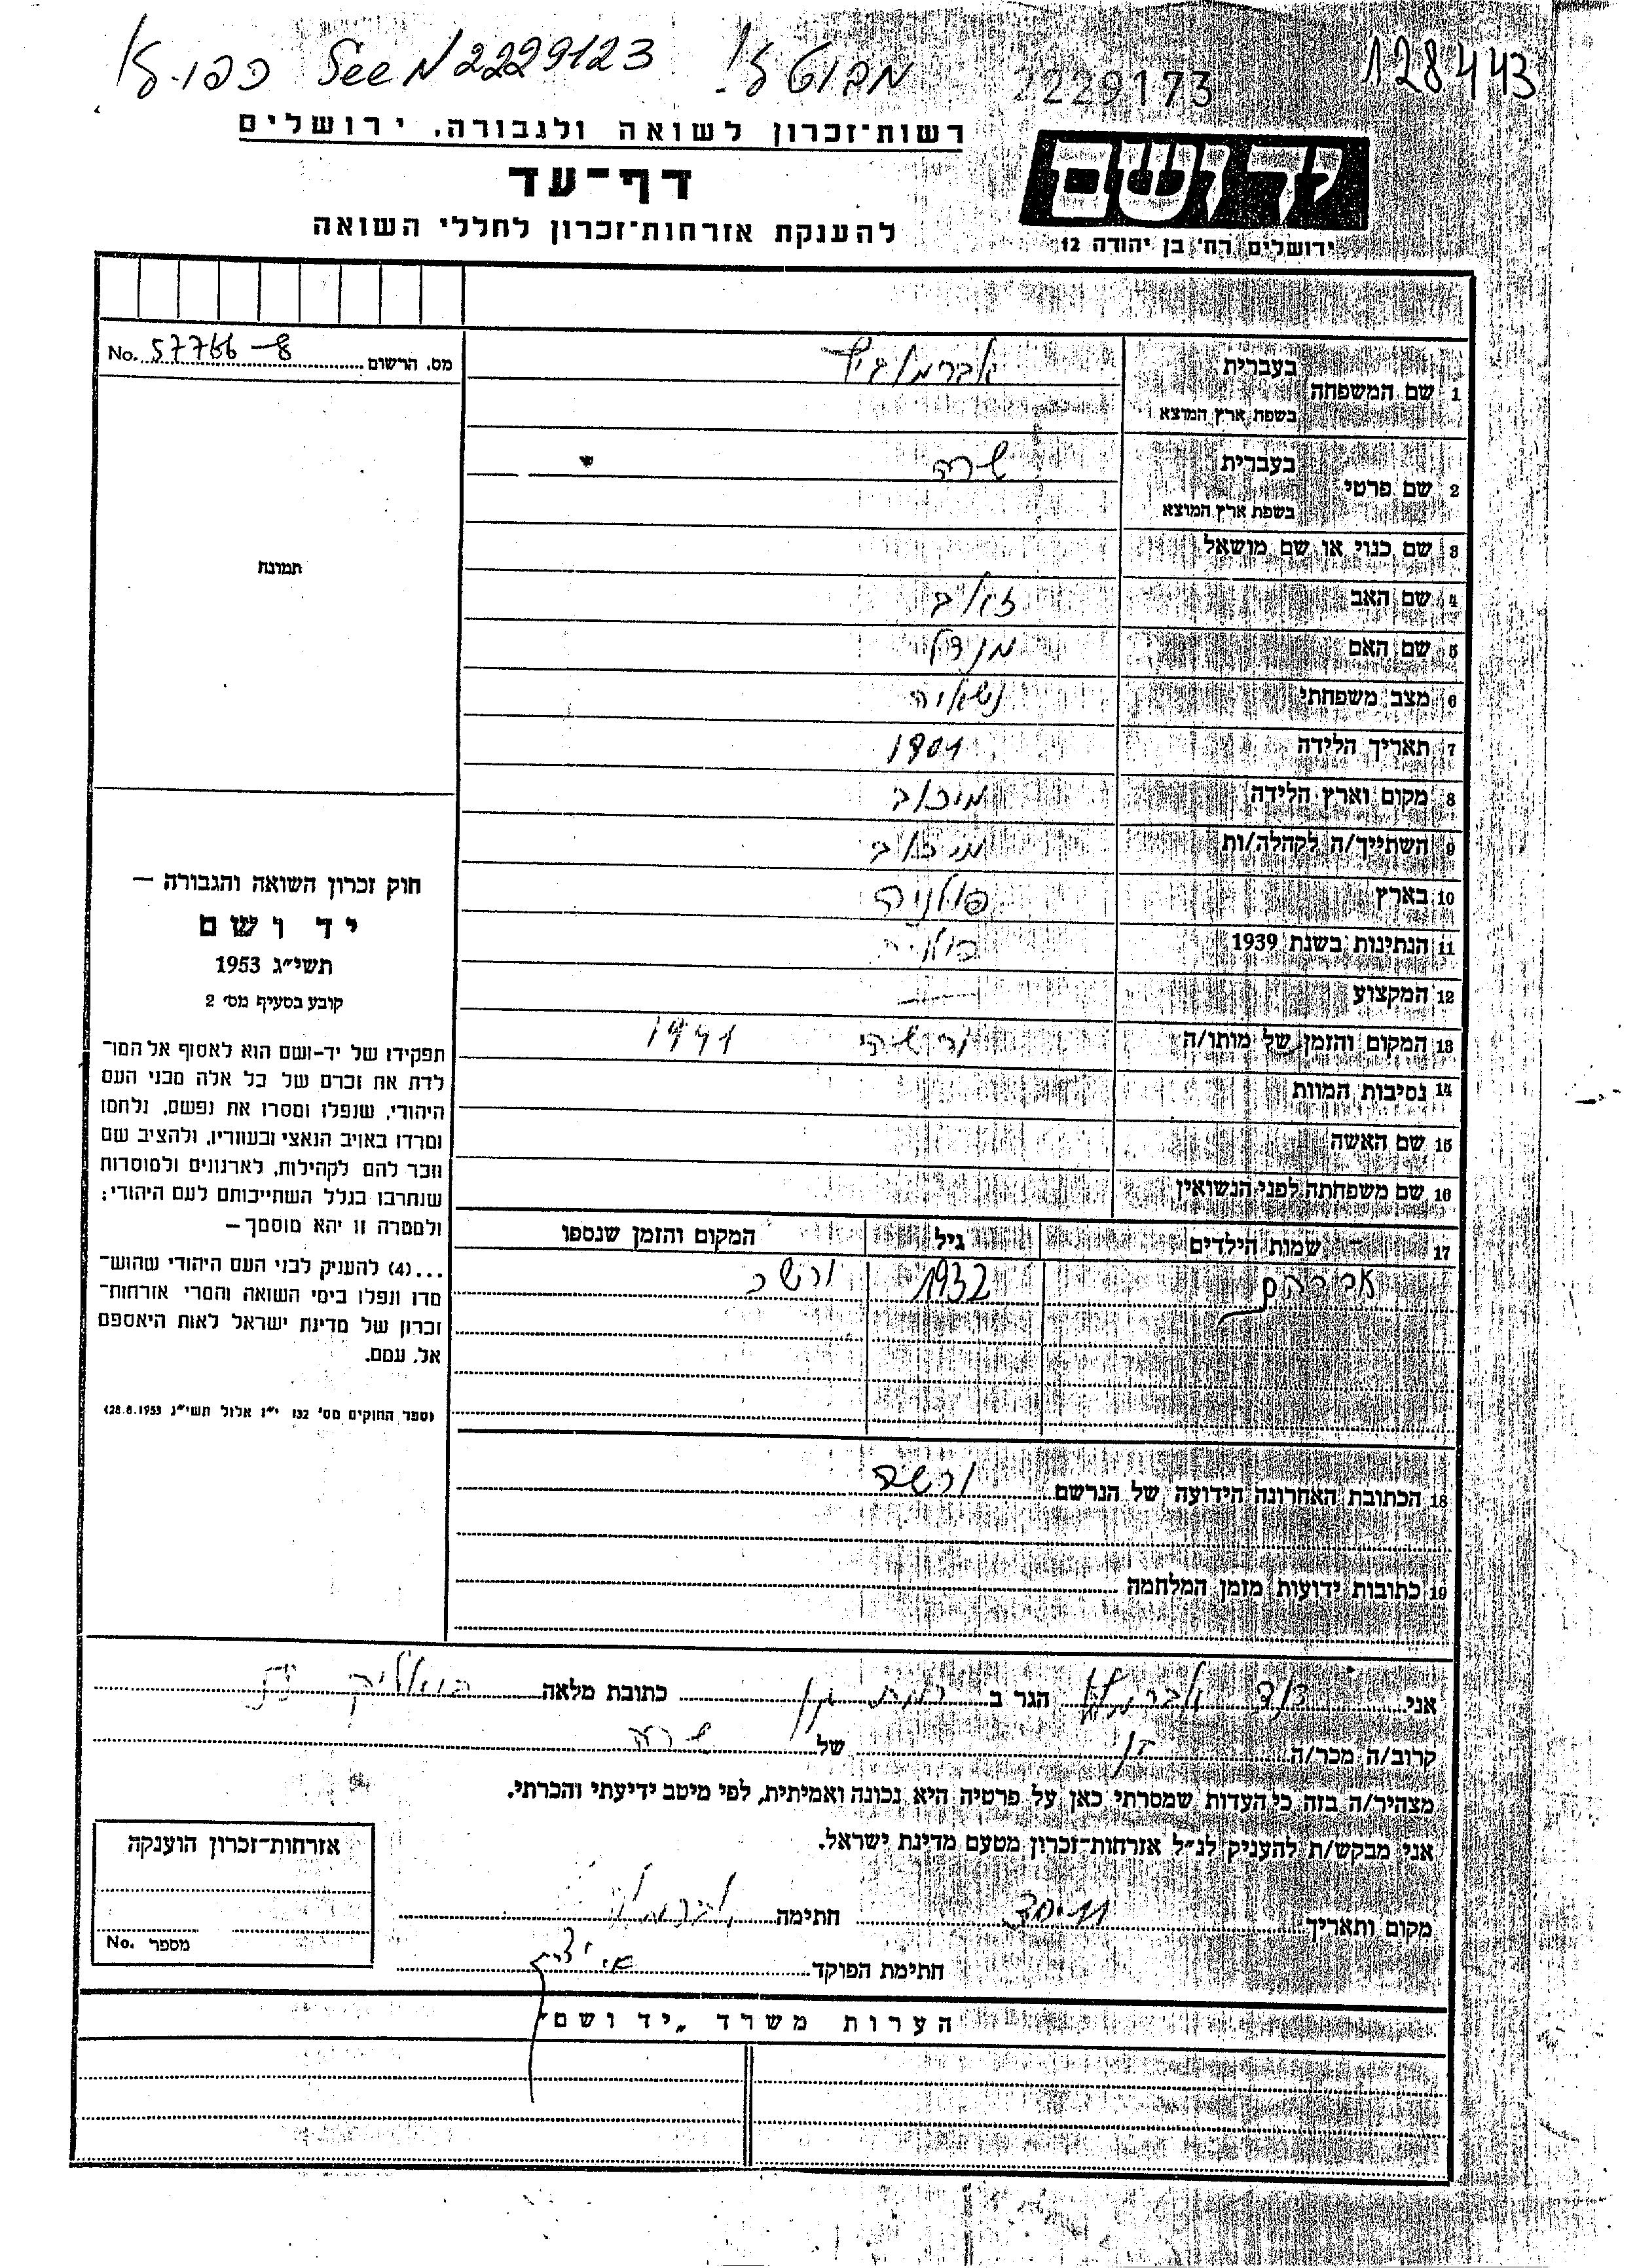 כפול! See 2229123 מבוטל! 2229173 128443
רשות־זכרון לשואה ולגבורה, ירושלים
דף־עד
להענקת אזרחות־זכרון לחללי השואה
ידושם
ירושלים, רח' בן יהודה 12
מס. הרשום 57766-8 No.
1 שם המשפחה
בעברית אברמוביץ
בשפת ארץ המוצא
2 שם פרטי
בעברית שרה
בשפת ארץ המוצא
3 שם כנוי או שם מושאל
4 שם האב
5 שם האם מנדל
6 מצב משפחתי נשואה
7 תאריך הלידה 1901
8 מקום וארץ הלידה מיכוב
9 השתייך/ה לקהלה/ות מיכוב
10 בארץ פולניה
11 הנתינות בשנת 1939 פולניה
12 המקצוע —
13 המקום והזמן של מותו/ה ורשה 1941
14 נסיבות המוות
15 שם האשה
16 שם משפחתה לפני הנשואין
17 שמות הילדים גיל המקום והזמן שנספו
אברהם 1932 ורשה
18 הכתובת האחרונה הידועה של הנרשם ורשה
19 כתובות ידועות מזמן המלחמה
תמונה
חוק זכרון השואה והגבורה —
יד ושם
תשי״ג 1953
קובע בסעיף מס' 2
תפקידו של יד-ושם הוא לאסוף אל המו־
לדת את זכרם של כל אלה מבני העם
היהודי, שנפלו ומסרו את נפשם, נלחמו
ומרדו באויב הנאצי ובעוזריו, ולהציב שם
וזכר להם לקהילות, לארגונים ולמוסדות
שנחרבו בגלל השתייכותם לעם היהודי;
ולמטרה זו יהא מוסמך —
...(4) להעניק לבני העם היהודי שהוש־
מדו ונפלו בימי השואה והמרי אזרחות־
זכרון של מדינת ישראל לאות היאספם
אל עמם.
(ספר החוקים מס' 132 י״ז אלול תשי״ג 28.8.1953)
אני דוד הגר ב רמת גן כתובת מלאה
קרוב/ה מכר/ה של שרה
מצהיר/ה בזה כי העדות שמסרתי כאן על פרטיה היא נכונה ואמיתית, לפי מיטב ידיעתי והכרתי.
אני מבקש/ת להעניק לנ״ל אזרחות־זכרון מטעם מדינת ישראל.
מקום ותאריך חתימה
חתימת הפוקד
אזרחות־זכרון הוענקה
מספר No.
הערות משרד „יד ושם"